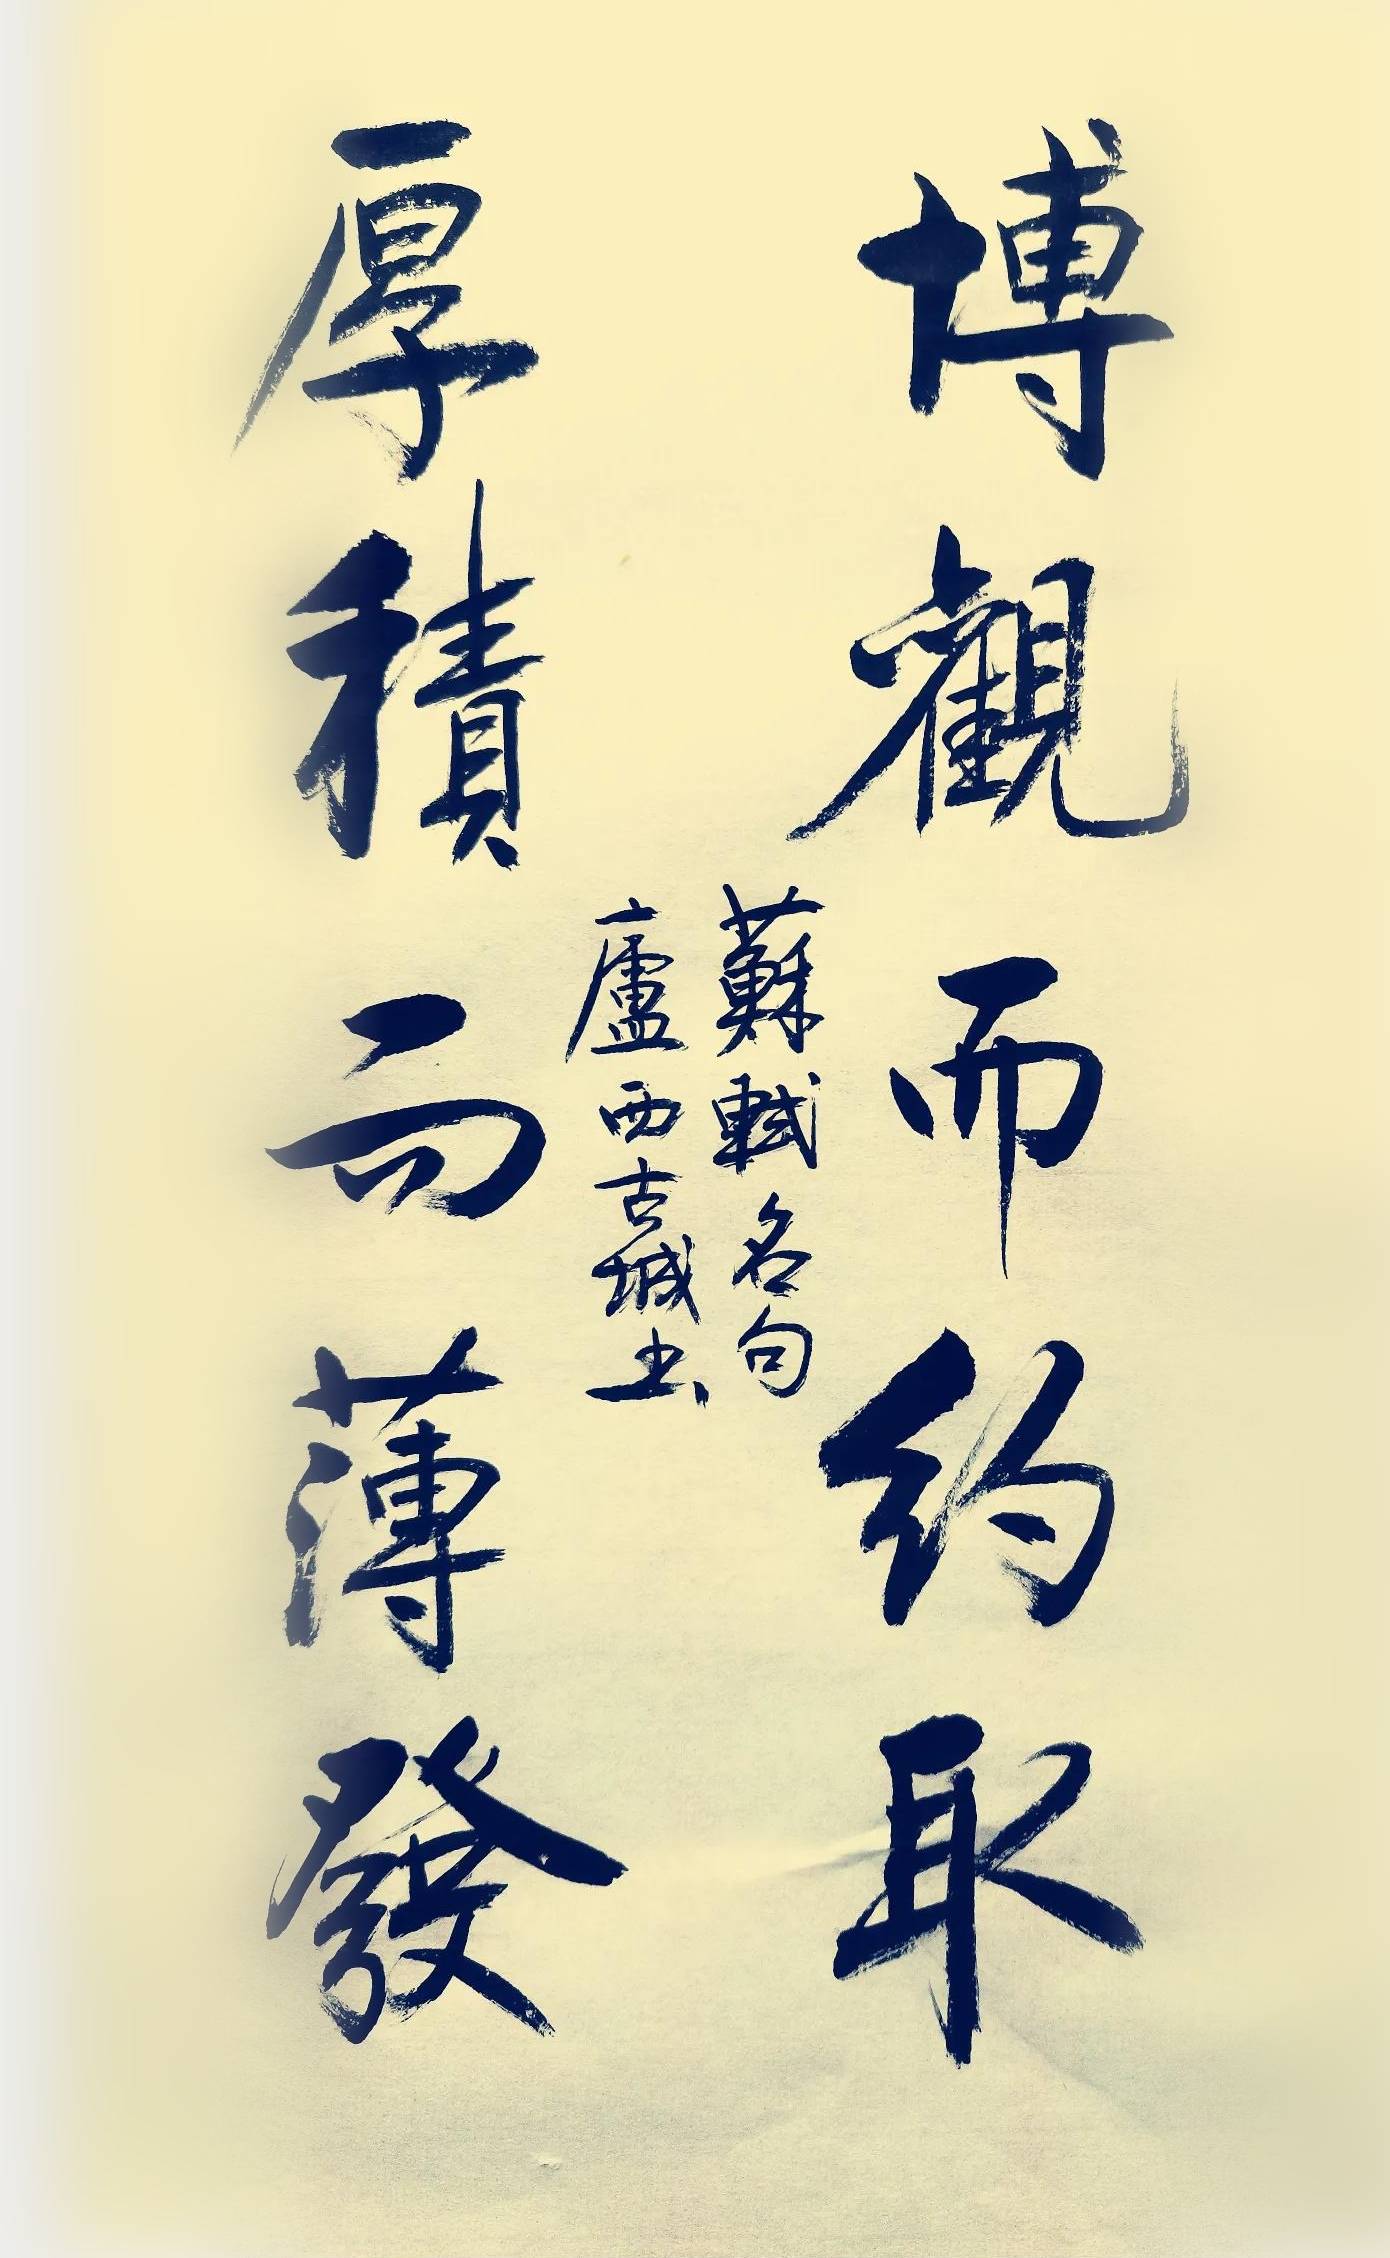 博觀而約取
厚積而薄發
蘇軾名句
廬西古城書